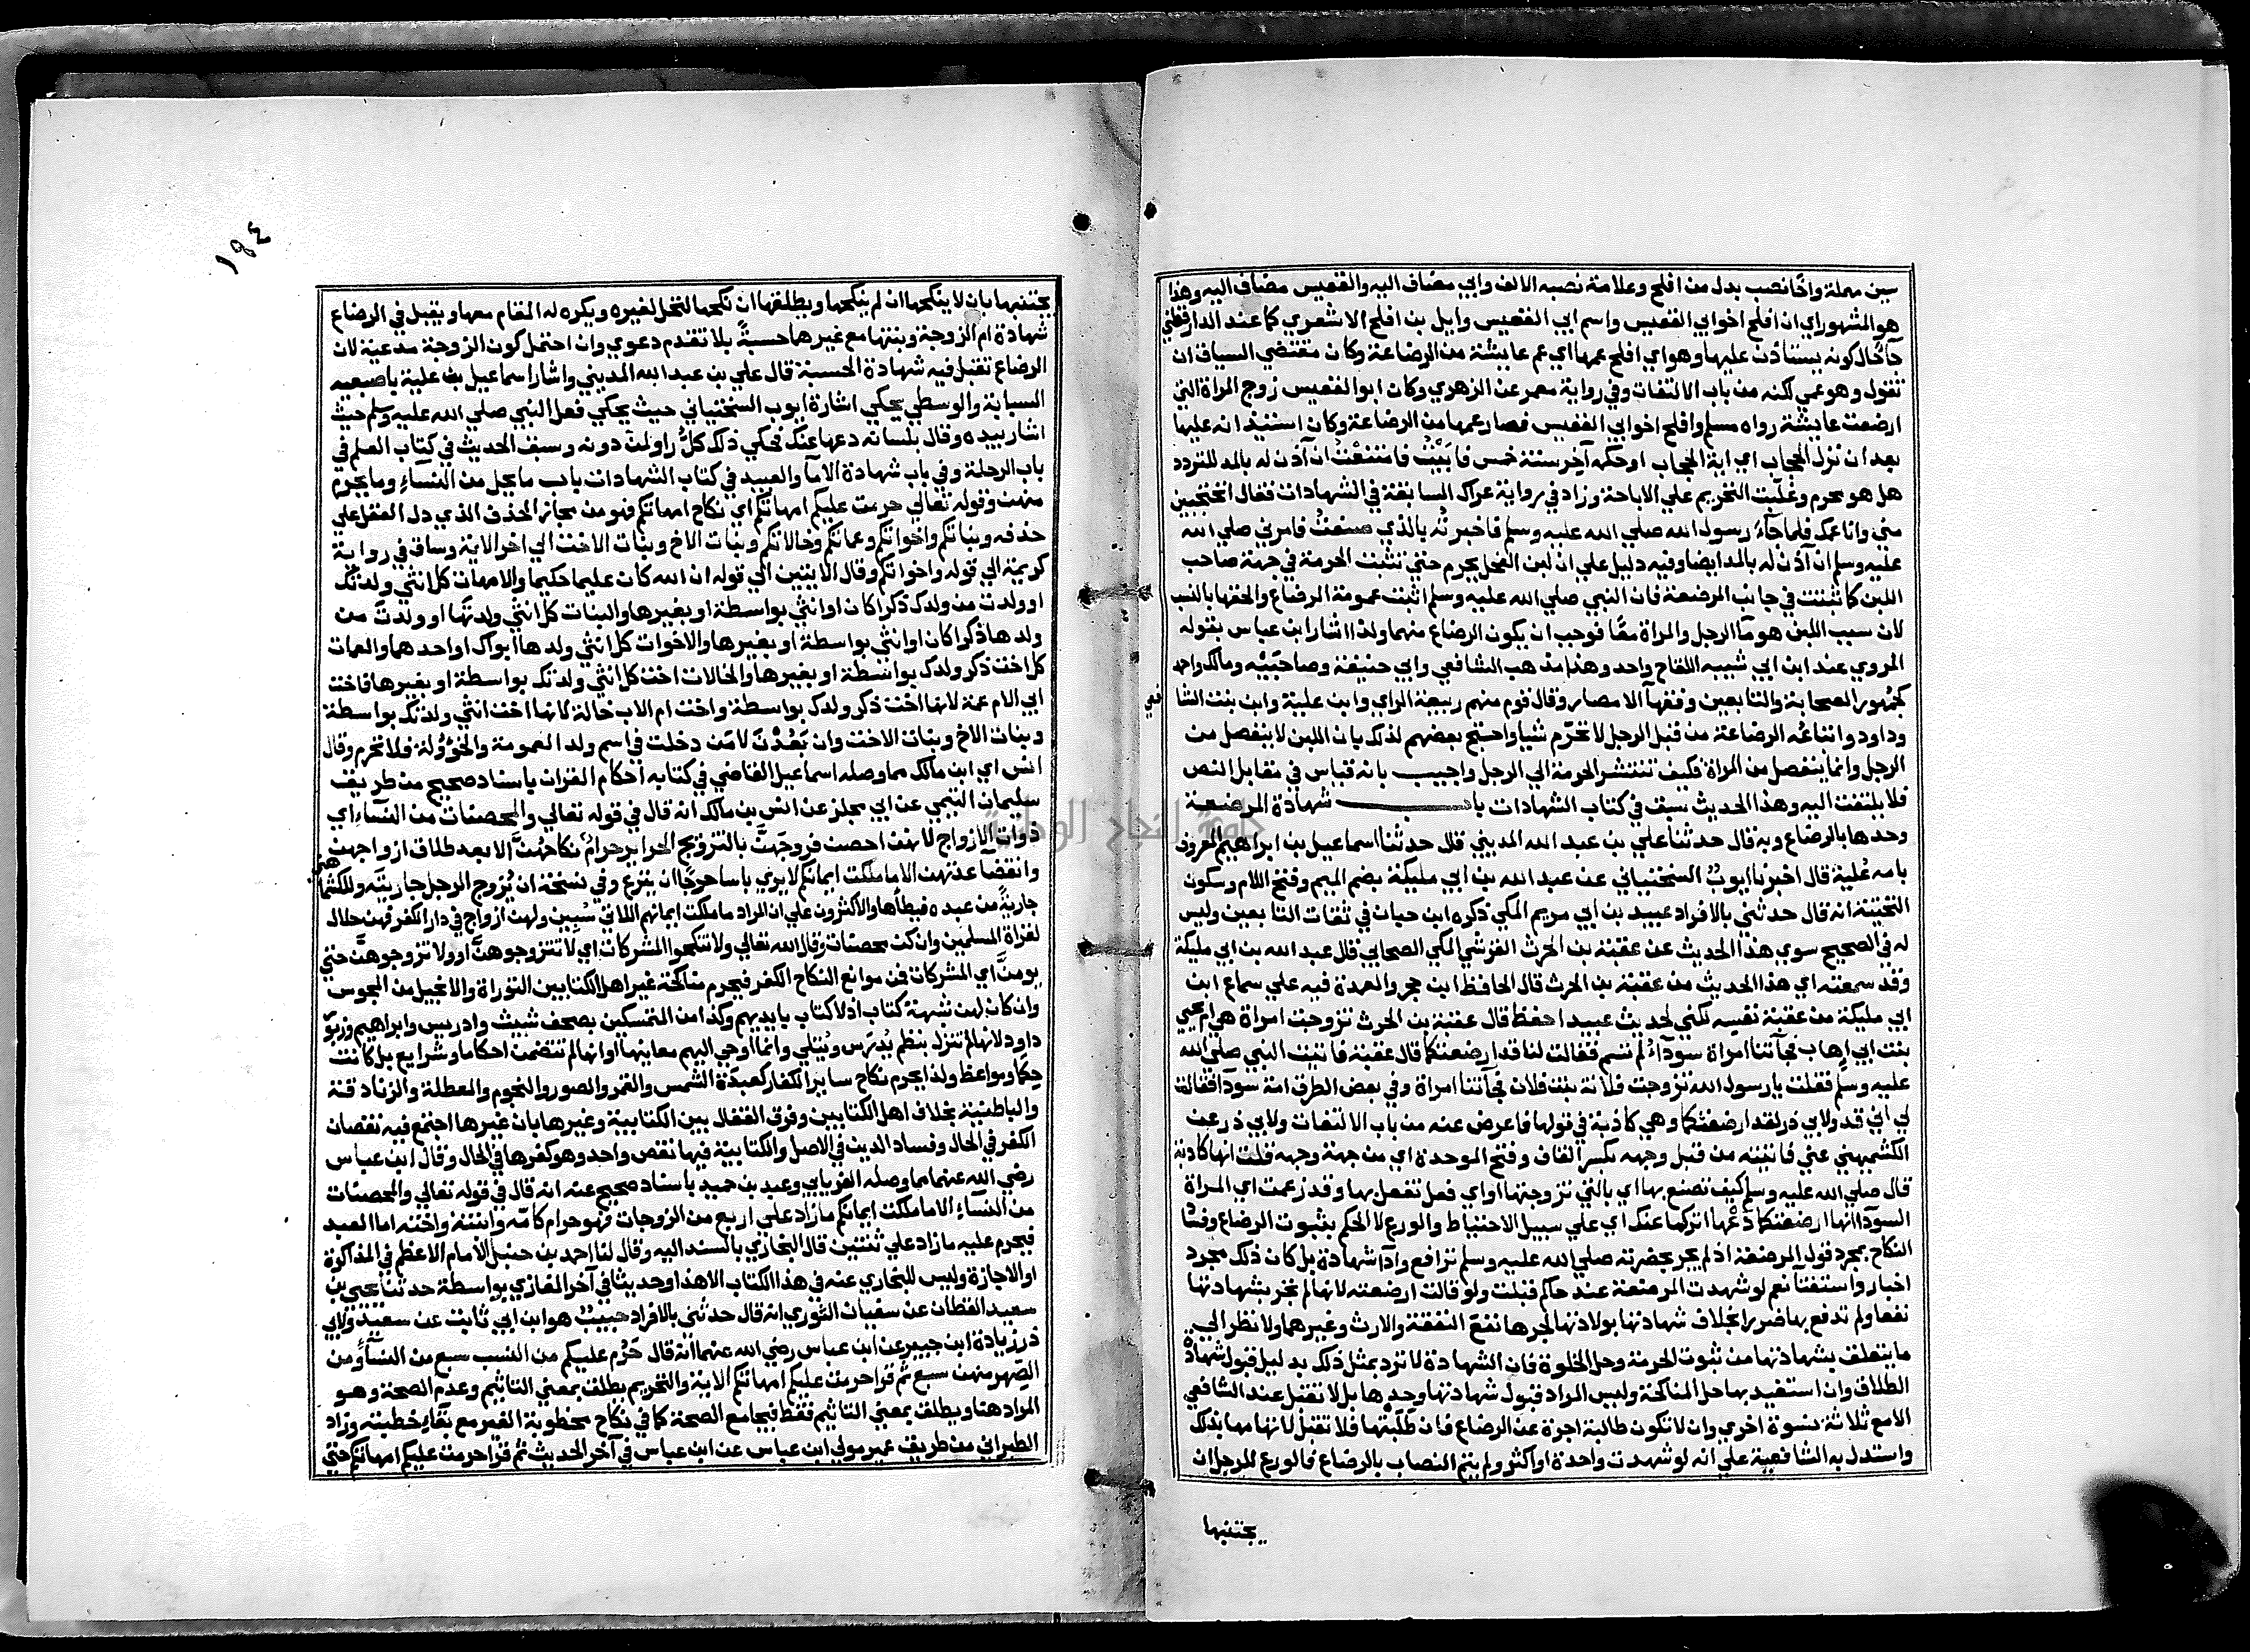 سين مهملة واخا نصب بدل من افلح وعلامة نصبه الالف وابي مضاف اليه والقعيس مضاف اليه وهذا
هو المشهور اي ان افلح اخو ابي القعيس واسم ابي القعيس وايل بن افلح الاشعري كما عند الدارقطني
جآ حال كونه يستاذن عليها وهو اي افلح عمها اي عم عايشة من الرضاعة وكان مقتضي السياق ان
تقول وهو عمي لكنه من باب الالتفات وفي رواية معمر عن الزهري وكان ابو القعيس زوج المراة التي
ارضعت عايشة رواه مسلم وافلح اخو ابي القعيس فصار عمها من الرضاعة وكان استيذانه عليها
بعد ان نزل الحجاب اي اية الحجاب او حكمه آخر سنة خمس فابَيْتُ فامتنعْتُ ان آذن له بالمد للتردد
هل هو محرم وغلّبت التحريم علي الاباحة وزاد في رواية عراك السابقة في الشهادات فقال اتحتجبين
مني وانا عمك فلما جآء رسول الله صلي الله عليه وسلم فاخبرتُه بالذي صنعتُ فامرني صلي الله
عليه وسلم ان آذن له بالمد ايضا وفيه دليل علي ان لبن الفحل يحرم حتي تثبت الحرمة في جهة صاحب
اللبن كما تثبت في جانب المرضعة فان النبي صلي الله عليه وسلم اثبت عمومة الرضاع والحقها بالنسب
لان سبب اللبن هو مآ الرجل والمراة معًا فوجب ان يكون الرضاع منهما ولذا اشار ابن عباس بقوله
المروي عند ابن ابي شيبه اللقاح واحد وهذا مذهب الشافعي وابي حنيفة وصاحبَيْه ومالك واحمد
كجمهور الصحابة والتابعين وفقهآ الامصار وقال قوم منهم ربيعة الراي وابن علية وابن بنت الشا
فعي
وداود واتباعُه الرضاعة من قبل الرجل لا تحرّم شيا واحتج بعضهم لذلك بان اللبن لا ينفصل من
الرجل وانما ينفصل من المراة فكيف تنتشر الحرمة الي الرجل واجيب بانه قياس في مقابل النص
فلا يلتفت اليه وهذا الحديث سبق في كتاب الشهادات باب شهادة المرضعة
وحدها بالرضاع وبه قال حدثنا علي بن عبد الله المديني قال حدثنا اسماعيل بن ابراهيم المعروف
بامه عُلية قال اخبرنا ايوبُ السختياني عن عبد الله بن ابي مليكة بضم الميم وفتح اللام وسكون
التحتية انه قال حدثني بالافراد عبيد بن ابي مريم المكي ذكره ابن حبان في ثقات التابعين وليس
له في الصحيح سوي هذا الحديث عن عقبة بن الحرث القرشي المكي الصحابي قال عبد الله بن ابي مليكة
وقد سمعته اي هذا الحديث من عقبة بن الحرث قال الحافظ ابن حجر والعمدة فيه علي سماع ابن
ابي مليكة من عقبة نفسِه لكني لحديث عبيد احفظ قال عقبة بن الحرث تزوجت امراة هي ام يحيي
بنت ابي إهاب فجآتنا امراة سودآءُ لم تسم فقالت لنا قد ارضعتكما قال عقبة فاتيت النبي صلي الله
عليه وسلم فقلت يا رسول الله تزوجت فلانة بنت فلان فجآتنا امراة وفي بعض الطرق امة سودآ فقالت
لي اني قد ولابي ذر لقد ارضعتكما وهي كاذبة في قولها فاعرض عنه من باب الالتفات ولابي ذر عن
الكشميهني عني فاتيته من قبل وجهه بكسر القاف وفتح الموحدة اي من جهة وجهه قلت انها كاذبة
قال صلي الله عليه وسلم كيف تصنع بها اي بالتي تزوجتها او اي فعل تفعل بها وقد زعمت اي المراة
السودآ انها ارضعتكما دَعْها اتركها عنك اي علي سبيل الاحتياط والورع لا الحكم بثبوت الرضاع وفسا
النكاح بمجرد قول المرضعة اذ لم يجر بحضرته صلي الله عليه وسلم ترافع وادآ شهادة بل كان ذلك مجرد
اخبار واستفتآ نعم لو شهدت المرضعة عند حاكم قبلت ولو قالت ارضعته لانها لم تجر بشهادتها
نفعا ولم تدفع بها ضررا بخلاف شهادتها بولادتها لجرها نفعَ النفقة والارث وغيرهما ولا نظر الي
ما يتعلق بشهادتها من ثبوت الحرمة وحل الخلوة فان الشهادة لا ترد بمثل ذلك بدليل قبول شهادة
الطلاق وان استفيد بها حل المناكحة وليس المراد قبول شهادتها وحدها بل لا تقبل عند الشافعي
الا مع ثلاثة نسوة اخري وان لا تكون طالبة اجرة عن الرضاع فان طَلَبَتْها فلا تقبل لاتهامها بذلك
واستدل به الشافعية علي انه لو شهدت واحدة او اكثر ولم يتم النصاب بالرضاع فالورع للرجل ان
يجتنبها
١٩٤
يجتنبها بان لا ينكحها ان لم ينكحها ويطلقها ان نكحها لتحل لغيره ويكره له المقام معها ويقبل في الرضاع
شهادة ام الزوجة وبنتها مع غيرها حسبةً بلا تقدم دعوي وان احتمل كون الزوجة مدعية لان
الرضاع تقبل فيه شهادة الحسبة قال علي بن عبد الله المديني واشار اسماعيل بن علية باصبعيه
السبابة والوسطي يحكي اشارة ايوب السختياني حيث يحكي فعل النبي صلي الله عليه وسلم حيث
اشار بيده وقال بلسانه دعها عنك فحكي ذلك كلُّ راو لمن دونه وسبق الحديث في كتاب العلم في
باب الرحلة وفي باب شهادة الامآ والعبيد في كتاب الشهادات باب ما يحل من النسآءِ وما يحرم
منهن وقوله تعالي حرمت عليكم امهاتكم اي نكاح امهاتكم فهو من مجاز الحذف الذي دل العقل علي
حذفه وبناتكم واخواتكم وعماتكم وخالاتكم وبنات الاخ وبنات الاخت الي اخر الاية وساق في رواية
كريمة الي قوله واخواتكم وقال الايتين الي قوله ان الله كان عليما حكيما والامهات كل انثي ولدتك
او ولدت من ولدك ذكرا كان او انثي بواسطة او بغيرها والبنات كل انثي ولدتَها او ولدتَ من
ولدها ذكرا كان او انثي بواسطة او بغيرها والاخوات كل انثي ولدها ابواك او احدهما والعمات
كل اخت ذكر ولدك بواسطة او بغيرها والخالات اخت كل انثي ولدتك بواسطة او بغيرها فاخت
ابي الام عمة لانها اخت ذكر ولدك بواسطة واخت ام الاب خالة لانها اخت انثي ولدتك بواسطة
وبنات الاخ وبنات الاخت وان بَعُدْنَ لا مَن دخلت في اسم ولد العمومة والخؤولة فلا تحرم وقال
انس اي ابن مالك مما وصله اسماعيل القاضي في كتابه احكام القران باسناد صحيح من طريق
سليمان التيمي عن ابي مجلز عن انس بن مالك انه قال في قوله تعالي والمحصنات من النسآءِ اي
ذوات الازواج لانهن احصن فروجهَنّ بالتزويج الحراير حرامٌ نكاحُهُنّ الا بعد طلاق ازواجهن
وانقضا عدتهن الا ما ملكت ايمانكم لا يري باسا حرجًا ان ينزع وفي نسخة ان يُزوج الرجل جاريته وللكشميهني
جاريةً من عبده فيطأها والاكثرون علي ان المراد ما ملكت ايمانهم اللاتي سُبِين ولهن ازواج في دار الكفر فهن حلال
لغزاة المسلمين وان كن محصنات وقال الله تعالي ولا تنكحوا المشركات اي لا تتزوجوهنّ او ولا تزوجوهنّ حتي
يومنّ اي المشركات فمن موانع النكاح الكفر فيحرم مناكحة غير اهل الكتابين التوراة والانجيل من المجوس
وان كان لهن شبهة كتاب اذ لا كتاب بايديهم وكذا من المتمسكين بصحف شيث وادريس وابراهيم وزبور
داود لانها لم تنزل بنظم يُدرس ويُتلي وانما اوحي اليهم معانيها او انها لم تتضمن احكاما وشرايع بل كانت
حِكَما ومواعظ ولذا يحرم نكاح ساير الكفار كعبدَة الشمس والقمر والصور والنجوم والمعطلة والزنادقة
والباطنية بخلاف اهل الكتابين وفرق القفال بين الكتابية وغيرها بان غيرها اجتمع فيه نقصان
الكفر في الحال وفساد الدين في الاصل والكتابية فيها نقص واحد وهو كفرها في الحال وقال ابن عباس
رضي الله عنهما مما وصله الفريابي وعبد بن حميد باسناد صحيح عنه انه قال في قوله تعالي والمحصنات
من النسآءِ الا ما ملكت ايمانكم ما زاد علي اربع من الزوجات فهو حرام كامّه وابنته واخته اما العبد
فيحرم عليه ما زاد علي ثنتين قال البخاري بالسند اليه وقال لنا احمد بن حنبل الامام الاعظم في المذاكرة
او الاجازة وليس للبخاري عنه في هذا الكتاب الا هذا وحديثا في آخر المغازي بواسطة حدثنا يحيي بن
سعيد القطان عن سفيان الثوري انه قال حدثني بالافراد حبيبٌ هو ابن ابي ثابت عن سعيد ولابي
ذر زيادة ابن جبير عن ابن عباس رضي الله عنهما انه قال حَرُم عليكم من النسب سبع من النسآءِ ومن
الصِّهر منهن سبع ثم قرا حرمت عليكم امهاتكم الاية والتحريم يطلق بمعني التاثيم وعدم الصحة وهو
المراد هنا ويطلق بمعني التاثيم فقط فيجامع الصحة كما في نكاح مخطوبة الغير مع بقآءِ خطبته وزاد
الطبراني من طريق عمير مولي ابن عباس عن ابن عباس في آخر الحديث ثم قرا حرمت عليكم امهاتكم حتي